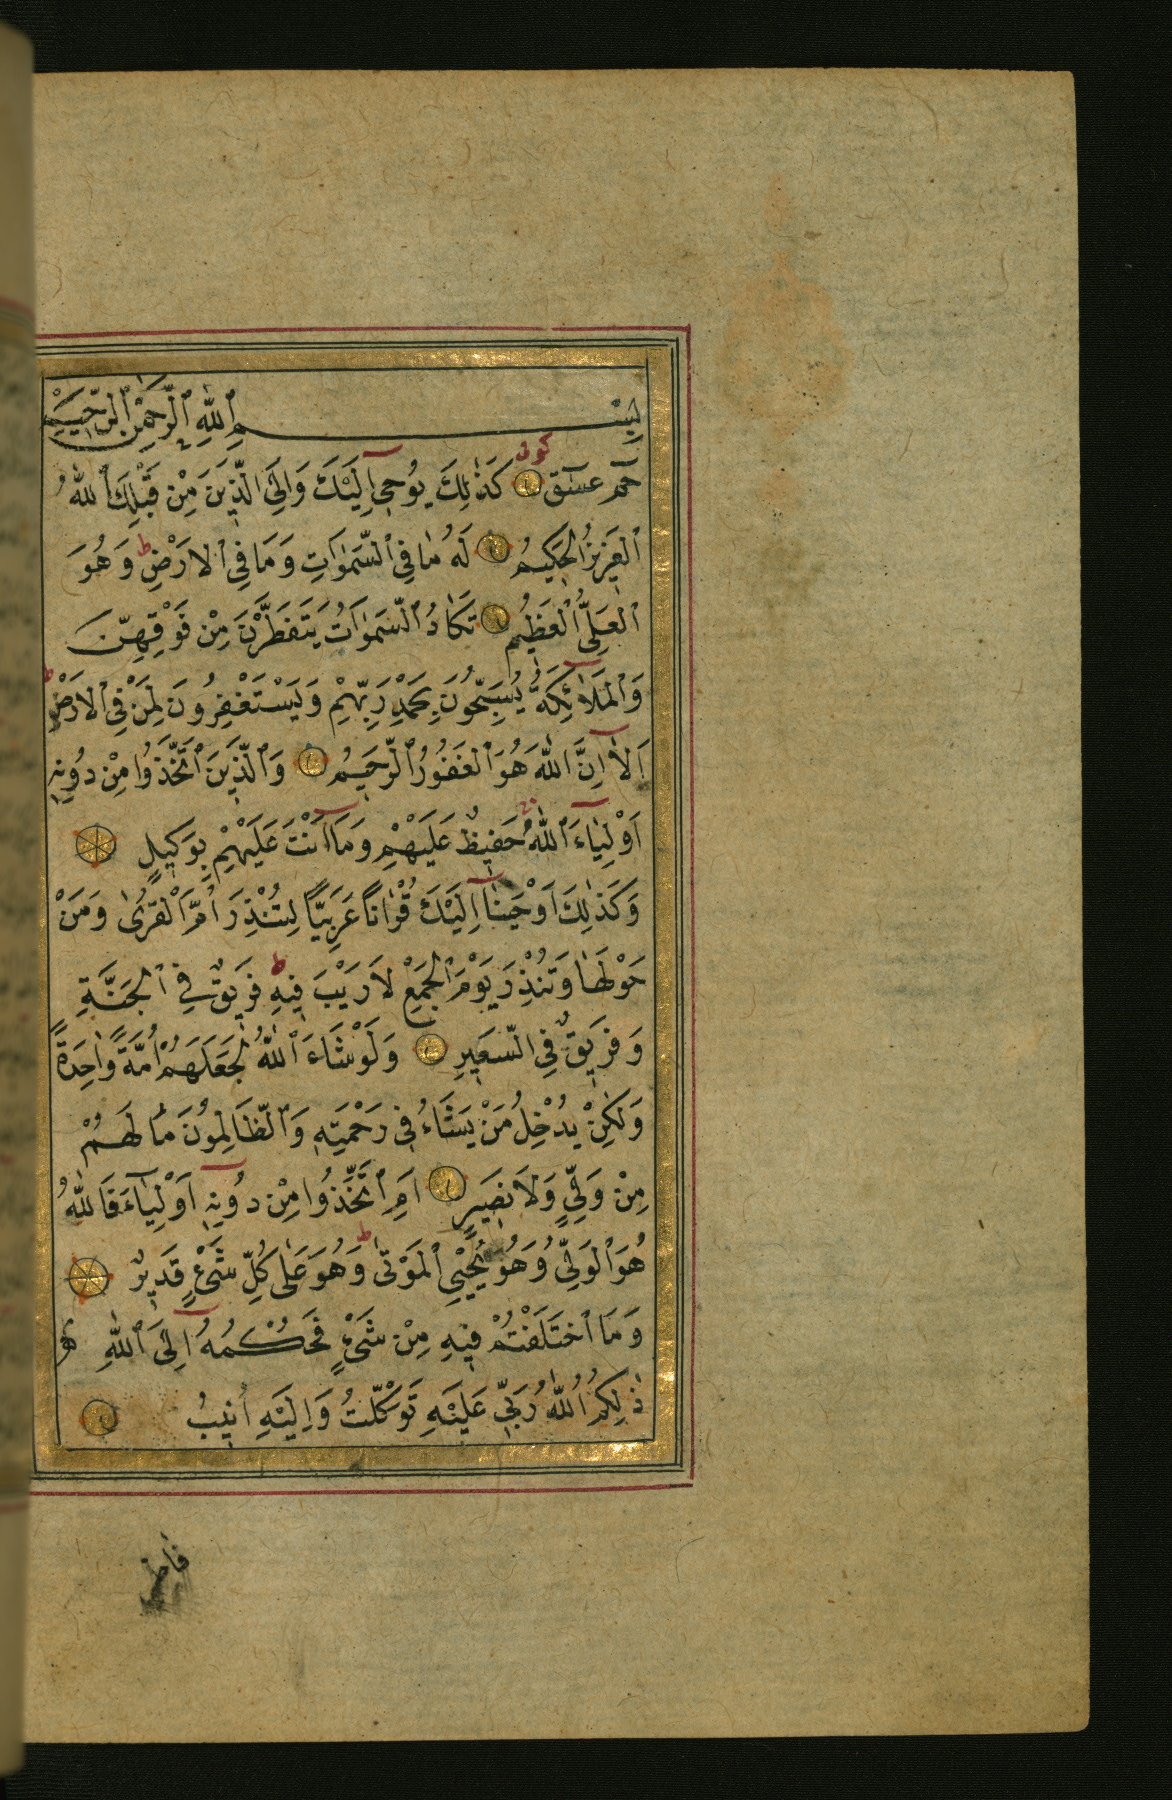 بِسْمِ ٱللّٰهِ ٱلرَّحْمٰنِ ٱلرَّحِيمِ
كوفى
حٰمٓ عٓسٓقٓ كَذٰلِكَ يُوحِىٓ اِلَيْكَ وَاِلَى الَّذِينَ مِنْ قَبْلِكَ ٱللّٰهُ
ٱلْعَزِيزُ الْحَكِيمُ لَهُ مَا فِي ٱلسَّمٰوَاتِ وَمَا فِي ٱلْاَرْضِ ط وَهُوَ
ٱلْعَلِىُّ ٱلْعَظِيمُ تَكَادُ ٱلسَّمٰوَاتُ يَتَفَطَّرْنَ مِنْ فَوْقِهِنَّ
وَٱلْمَلٰٓائِكَةُ يُسَبِّحُونَ بِحَمْدِ رَبِّهِمْ وَيَسْتَغْفِرُونَ لِمَنْ فِي ٱلْاَرْضِ ط
اَلَآ اِنَّ ٱللّٰهَ هُوَ ٱلْغَفُورُ ٱلرَّحِيمُ وَٱلَّذِينَ ٱتَّخَذُوا مِنْ دُونِهِ
اَوْلِيَآءَ ٱللّٰهُ حَفِيظٌ عَلَيْهِمْ وَمَآ اَنْتَ عَلَيْهِمْ بِوَكِيلٍ
وَكَذٰلِكَ اَوْحَيْنَآ اِلَيْكَ قُرْاٰنًا عَرَبِيًّا لِتُنْذِرَ اُمَّ ٱلْقُرٰى وَمَنْ
حَوْلَهَا وَتُنْذِرَ يَوْمَ ٱلْجَمْعِ لَا رَيْبَ فِيهِ ط فَرِيقٌ فِي ٱلْجَنَّةِ
وَفَرِيقٌ فِي السَّعِيرِ وَلَوْ شَاءَ ٱللّٰهُ لَجَعَلَهُمْ اُمَّةً وَاحِدَةً
وَلٰكِنْ يُدْخِلُ مَنْ يَشَاءُ فِي رَحْمَتِهِ وَٱلظَّالِمُونَ مَا لَهُمْ
مِنْ وَلِيٍّ وَلَا نَصِيرٍ اَمِ ٱتَّخَذُوا مِنْ دُونِهِٓ اَوْلِيَآءَ فَاللّٰهُ
هُوَ ٱلْوَلِىُّ وَهُوَ يُحْيِي ٱلْمَوْتٰى ط وَهُوَ عَلٰى كُلِّ شَىْءٍ قَدِيرٌ
وَمَا ٱخْتَلَفْتُمْ فِيهِ مِنْ شَىْءٍ فَحُكْمُهُٓ اِلَى ٱللّٰهِ
ذٰلِكُمُ ٱللّٰهُ رَبِّي عَلَيْهِ تَوَكَّلْتُ وَاِلَيْهِ اُنِيبُ
فاطر